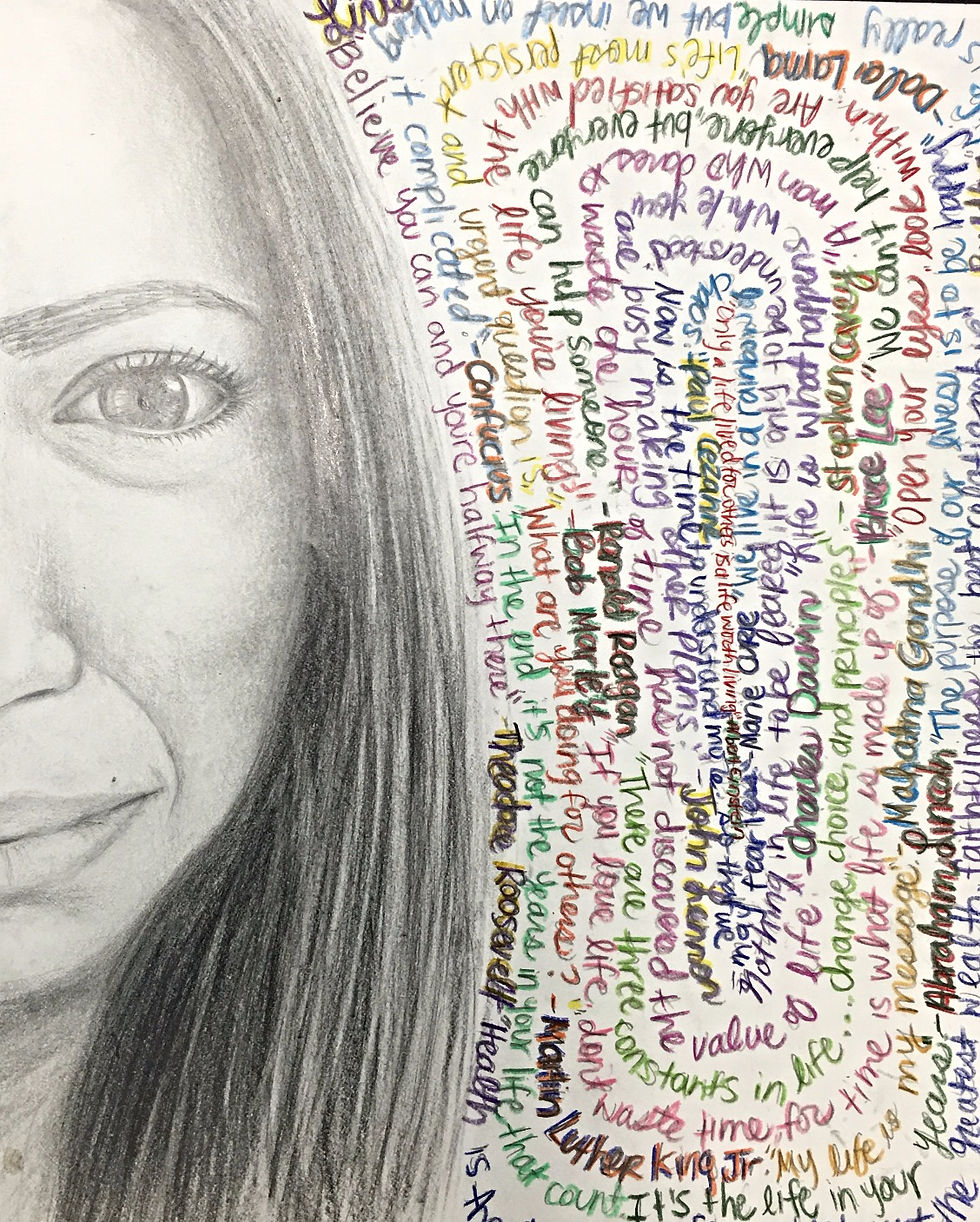 Live
"Believe you can and you're halfway there" -Theodore Roosevelt
"Health is
the greatest wealth, faithfulness the best
is really simple but we insist on making it complicated" -Confucius
"In the end it's not the years in your life that count. It's the life in your years" -Abraham Lincoln
"The purpose of our lives is to be happy" -Dalai Lama
"Life's most persistent and urgent question is, "What are you doing for others? -Martin Luther King Jr.
"My life is my message" -Mahatma Gandhi
"Open your eyes, look within. Are you satisfied with the life you're living" -Bob Marley
"If you love life, don't waste time, for time is what life is made up of." -Bruce Lee
"We can't help everyone, but everyone can help someone" -Ronald Reagan
"There are three constants in life... change, choice, and principles" -Stephen Covey
"A man who dares to waste one hour of time has not discovered the value of life" -Charles Darwin
"life is what happens while you are busy making other plans." -John Lennon
Nothing in life to be feared, it is only to be understood Now is the time to understand more so that we may fear less -Marie Curie
"We live in a rainbow of chaos" -Paul Cezanne
"Only a life lived for others is a life worth living" -Albert Einstein